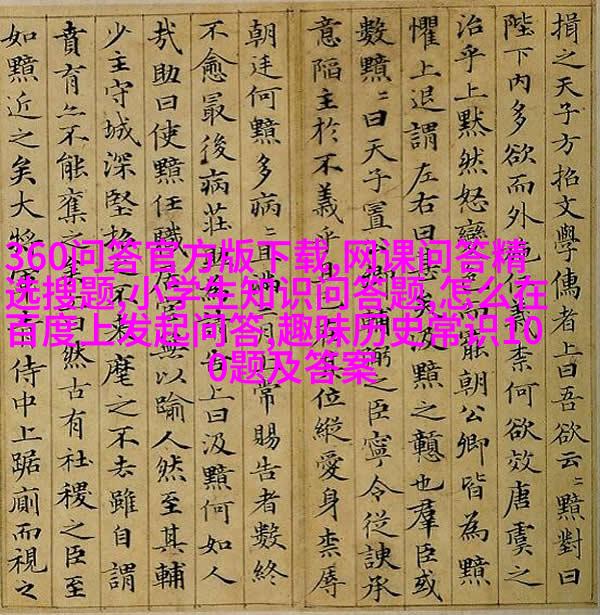 揖之天子方招文學儒者上曰吾欲云〻黯對曰
陛下內多欲而外施仁義柰何欲效唐虞之
治乎上黙然怒變色而罷朝公卿皆為黯
懼上退謂左右曰甚矣汲黯之戇也羣臣或
數黯〻曰天子置公卿輔弼之臣寧令從諛承
意陷主於不義乎且已在其位縱愛身柰辱
朝廷何黯多病〻且滿三月上常賜告者數終
不愈最後病莊助為請告上曰汲黯何如人
哉助曰使黯任職居官無以踰人然至其輔
少主守城深堅招之不來麾之不去雖自謂
賁育亦不能奪之矣上曰然古有社稷之臣至
如黯近之矣大將軍青侍中上踞廁而視之
360问答官方版下载,网课问答精
选搜题,小学生知识问答题,怎么在
百度上发起问答,趣味历史常识10
0题及答案